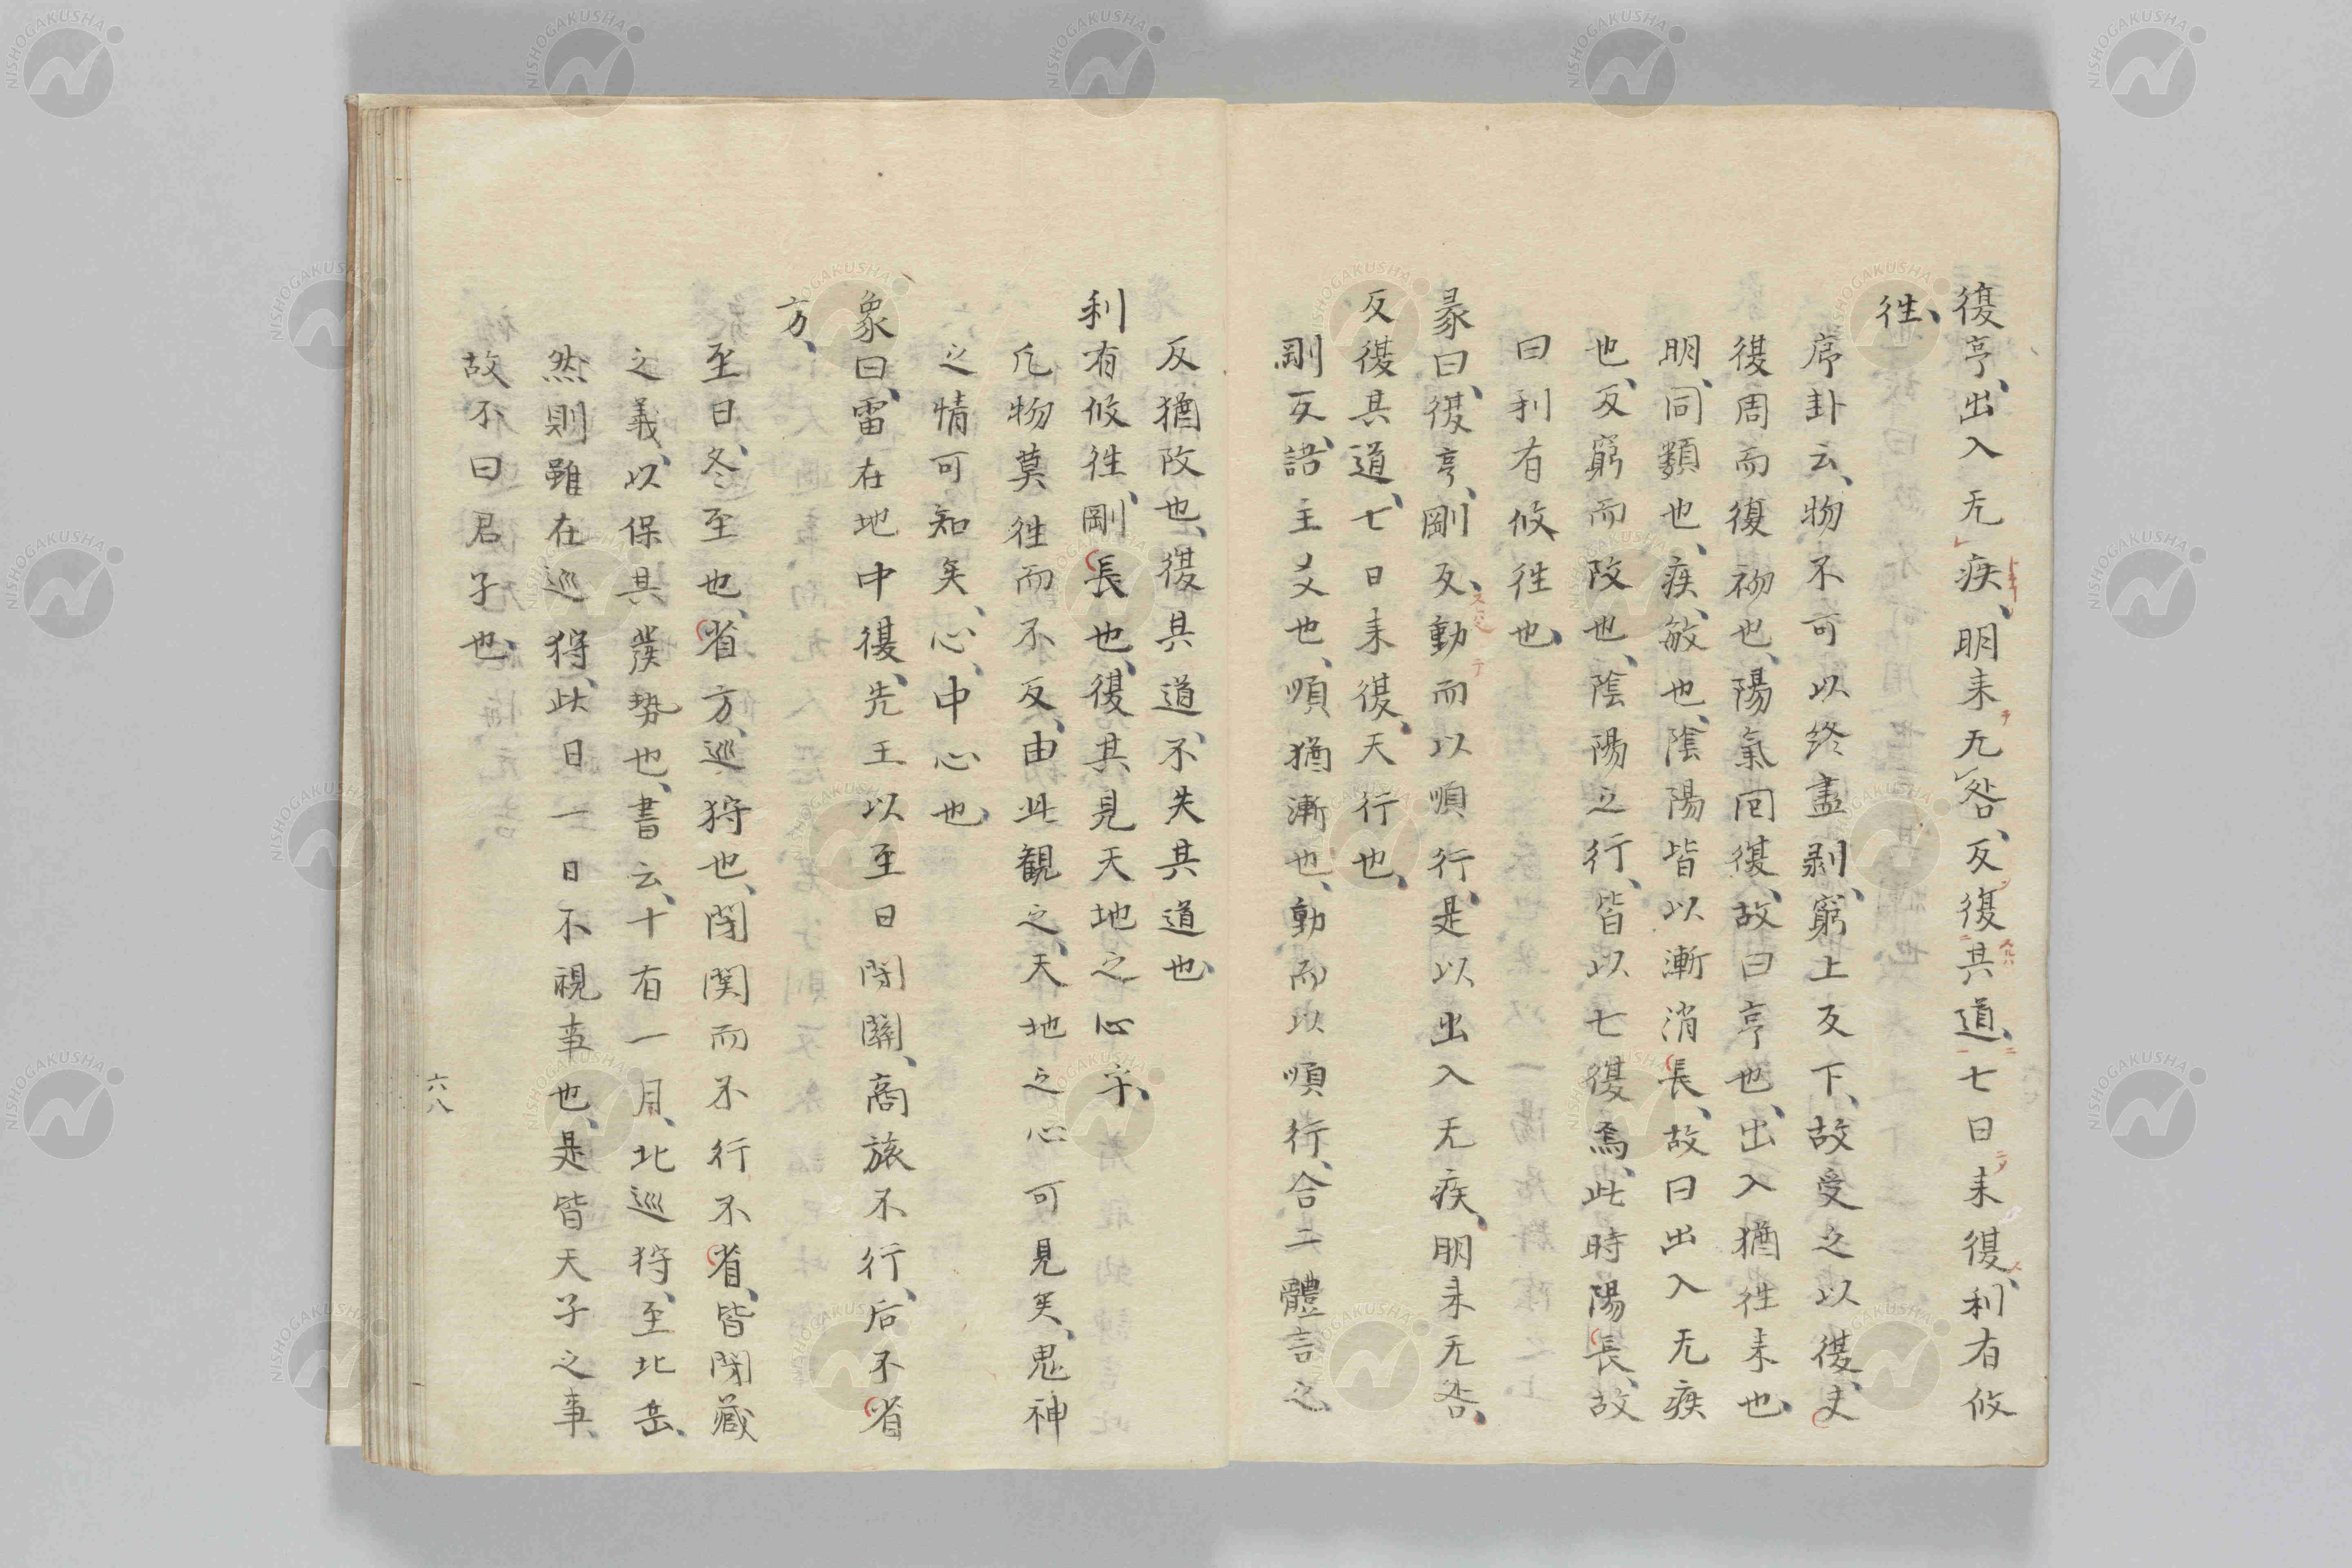 復亨、出入无疾、朋来无咎、反復其道、七日来復、利有攸
徃、
序卦云、物不可以終盡剥、窮上反下、故受之以復、
復周而復初也、陽氣囘復、故曰亨也、出入猶徃来也、
朋、同類也、疾、敏也、陰陽皆以漸消長、故曰出入无疾
也、反、窮而改也、陰陽之行、皆以七復焉、此時陽長、故
曰利有攸徃也、
彖曰、復亨、剛反、動而以順行、是以出入无疾、朋来无咎、
反復其道、七日来復、天行也、
剛反、語主爻也、順猶漸也、動而以順行、合二體言之
反猶改也、復其道、不失其道也、
利有攸徃、剛長也、復其見天地之心乎、
凡物莫徃而不反、由此觀之、天地之心可見矣、鬼神
之情可知矣、心、中心也、
象曰、雷在地中復、先王以至日閉關、商旅不行、后不省
方、
至日、冬至也、省方、巡狩也、閉関而不行不省、皆閉藏
之義、以保其勢也、書云、十有一月、北巡狩、至北岳、
然則雖在巡狩、此日一日不視事也、是皆天子之事、
故不曰君子也、
六八
NISHOGAKUSHA